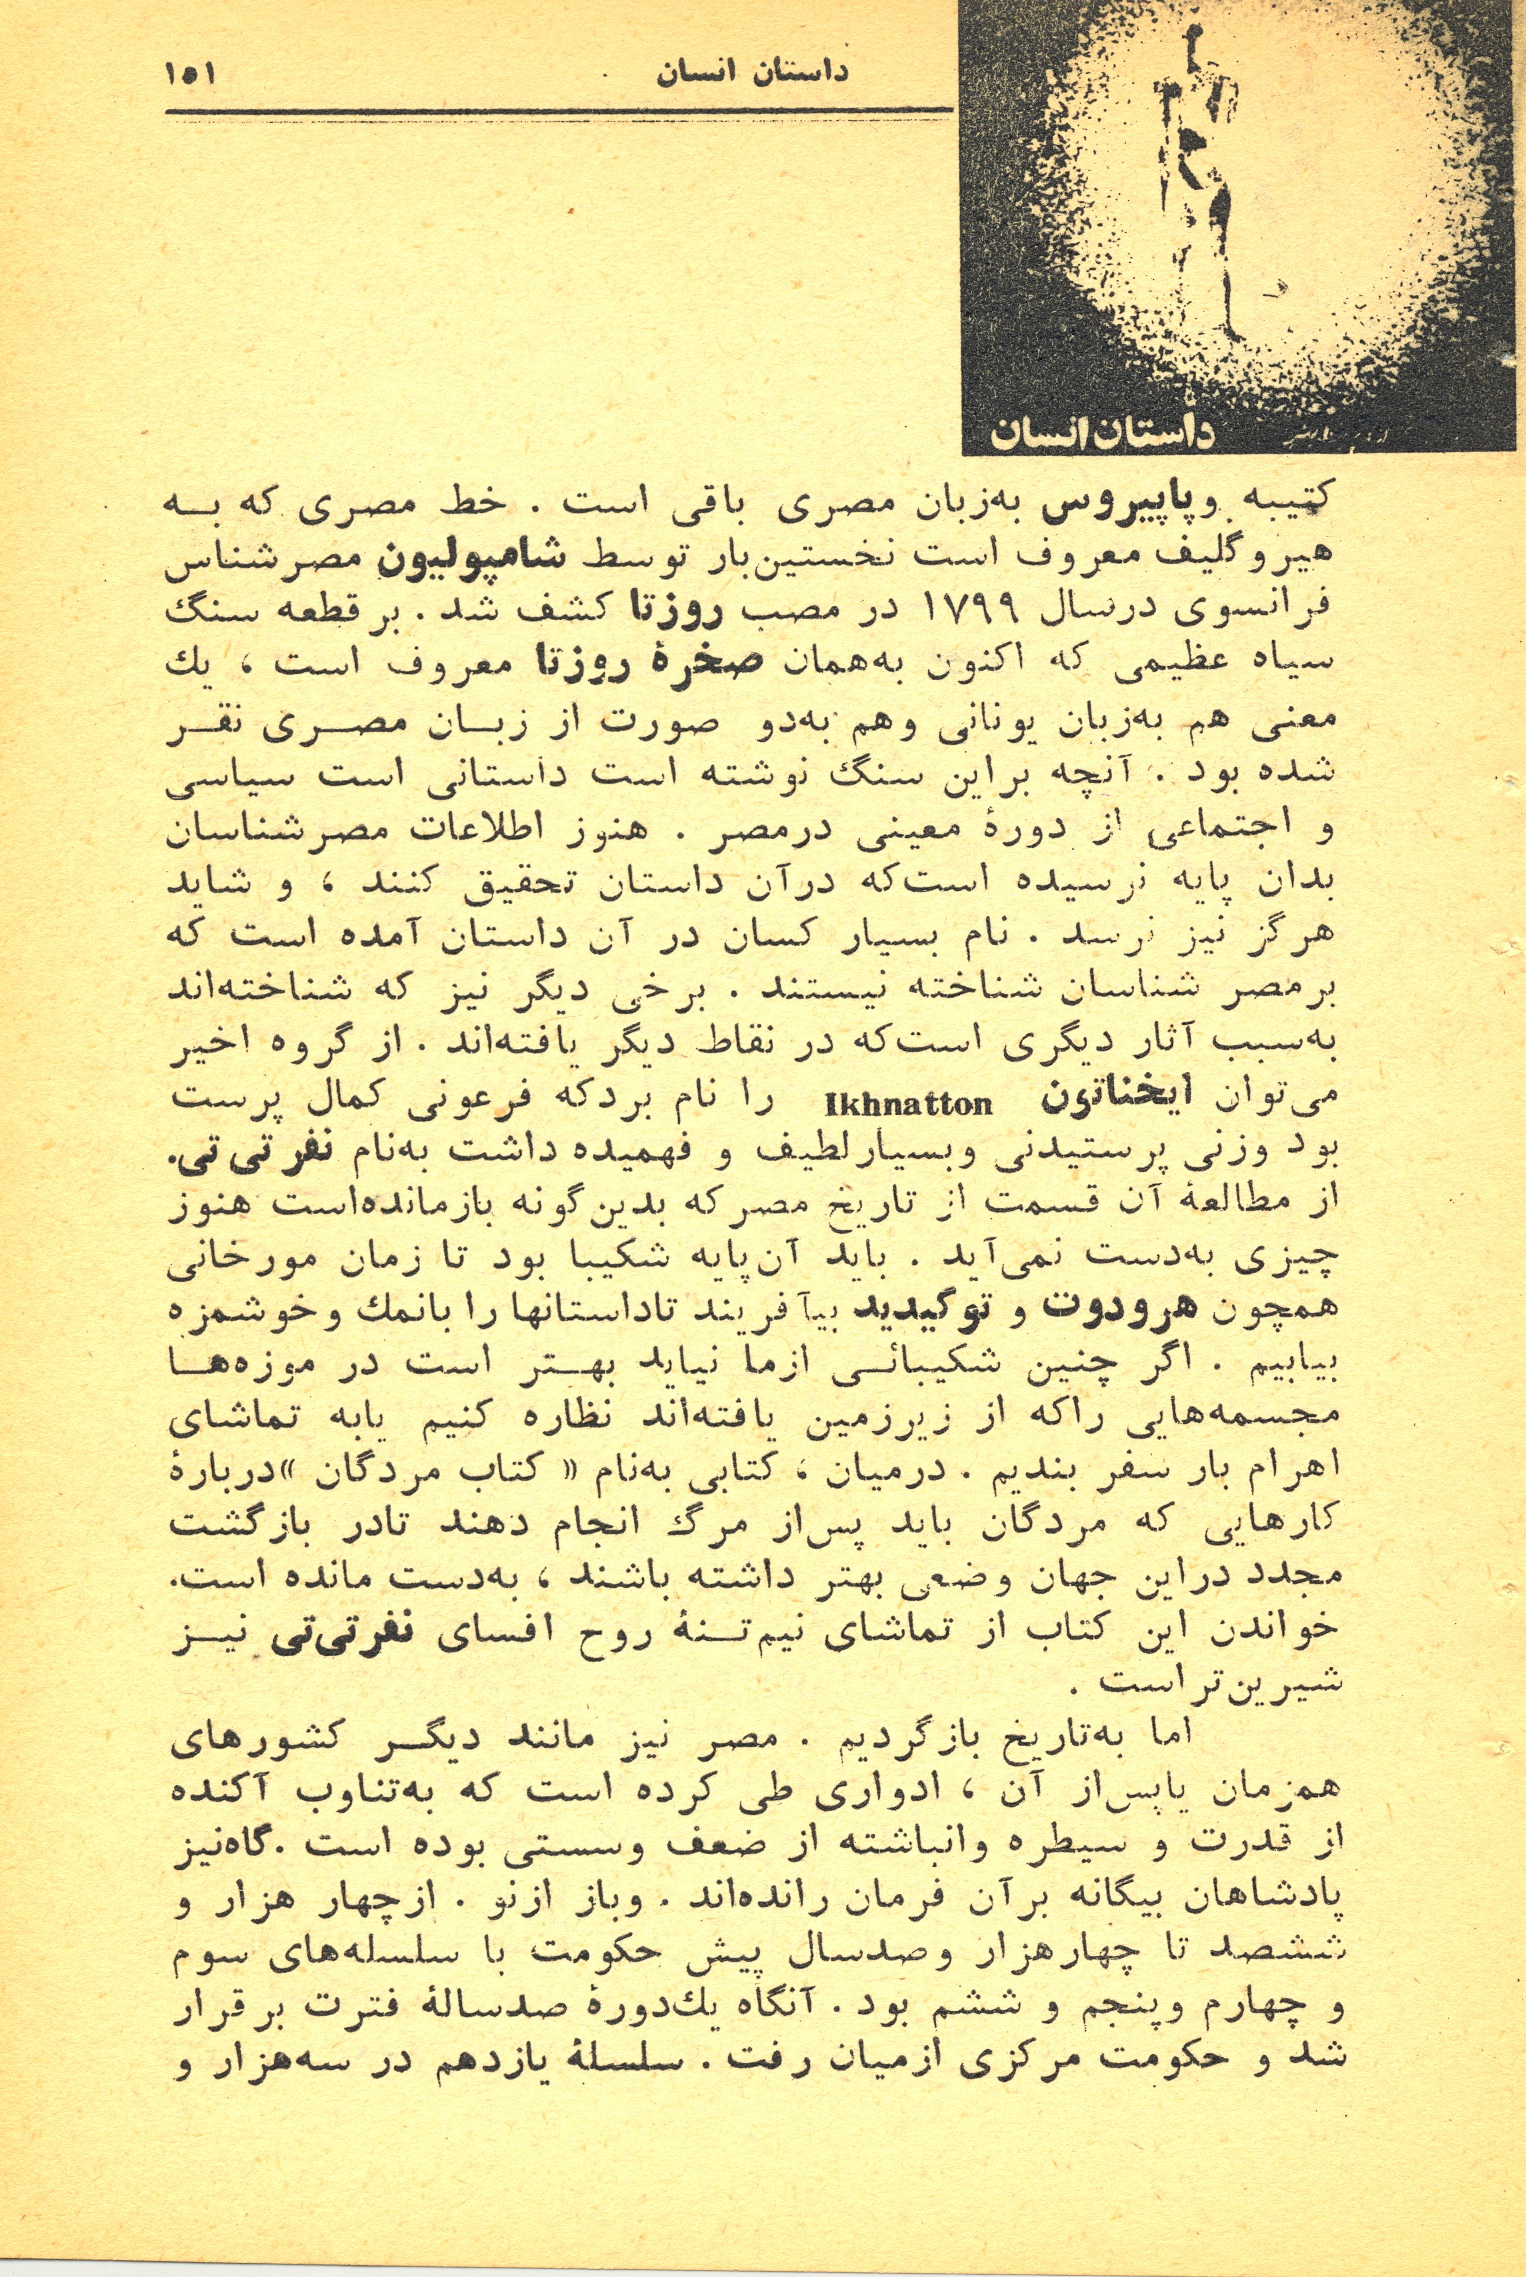 داستان انسان ۱۵۱
داستان انسان
کتیبه و پاپیروس به‌زبان مصری باقی است . خط مصری که به
هیروگلیف معروف است نخستین‌بار توسط شامپولیون مصرشناس
فرانسوی درسال ۱۷۹۹ در مصب روزتا کشف شد . بر قطعه سنگ
سیاه عظیمی که اکنون به‌همان صخرهٔ روزتا معروف است ، یك
معنی هم به‌زبان یونانی وهم به‌دو صورت از زبان مصری نقر
شده بود . آنچه براین سنگ نوشته است داستانی است سیاسی
و اجتماعی از دورهٔ معینی درمصر . هنوز اطلاعات مصرشناسان
بدان پایه نرسیده است‌که درآن داستان تحقیق کنند ، و شاید
هرگز نیز نرسد . نام بسیار کسان در آن داستان آمده است که
برمصر شناسان شناخته نیستند . برخی دیگر نیز که شناخته‌اند
به‌سبب آثار دیگری است‌که در نقاط دیگر یافته‌اند . از گروه اخیر
می‌توان ایخناتون Ikhnatton را نام بردکه فرعونی کمال پرست
بود وزنی پرستیدنی وبسیارلطیف و فهمیده داشت به‌نام نفرتی‌تی.
از مطالعهٔ آن قسمت از تاریخ مصرکه بدین‌گونه بازمانده‌است هنوز
چیزی به‌دست نمی‌آید . باید آن‌پایه شکیبا بود تا زمان مورخانی
همچون هرودوت و توکیدید بیآفریند تاداستانها را بانمك وخوشمزه
بیابیم . اگر چنین شکیبائی ازما نیاید بهتر است در موزه‌ها
مجسمه‌هایی راکه از زیرزمین یافته‌اند نظاره کنیم یابه تماشای
اهرام بار سفر بندیم . درمیان ، کتابی به‌نام « کتاب مردگان »دربارهٔ
کارهایی که مردگان باید پس‌از مرگ انجام دهند تادر بازگشت
مجدد دراین جهان وضعی بهتر داشته باشند ، به‌دست مانده است.
خواندن این کتاب از تماشای نیم‌تنهٔ روح افسای نفرتی‌تی نیز
شیرین‌تراست .
اما به‌تاریخ بازگردیم . مصر نیز مانند دیگر کشورهای
همزمان یاپس‌از آن ، ادواری طی کرده است که به‌تناوب آکنده
از قدرت و سیطره وانباشته از ضعف وسستی بوده است .گاه‌نیز
پادشاهان بیگانه برآن فرمان رانده‌اند . وباز ازنو . ازچهار هزار و
ششصد تا چهارهزار وصدسال پیش حکومت با سلسله‌های سوم
و چهارم وپنجم و ششم بود . آنگاه یك‌دورهٔ صدسالهٔ فترت برقرار
شد و حکومت مرکزی ازمیان رفت . سلسلهٔ یازدهم در سه‌هزار و